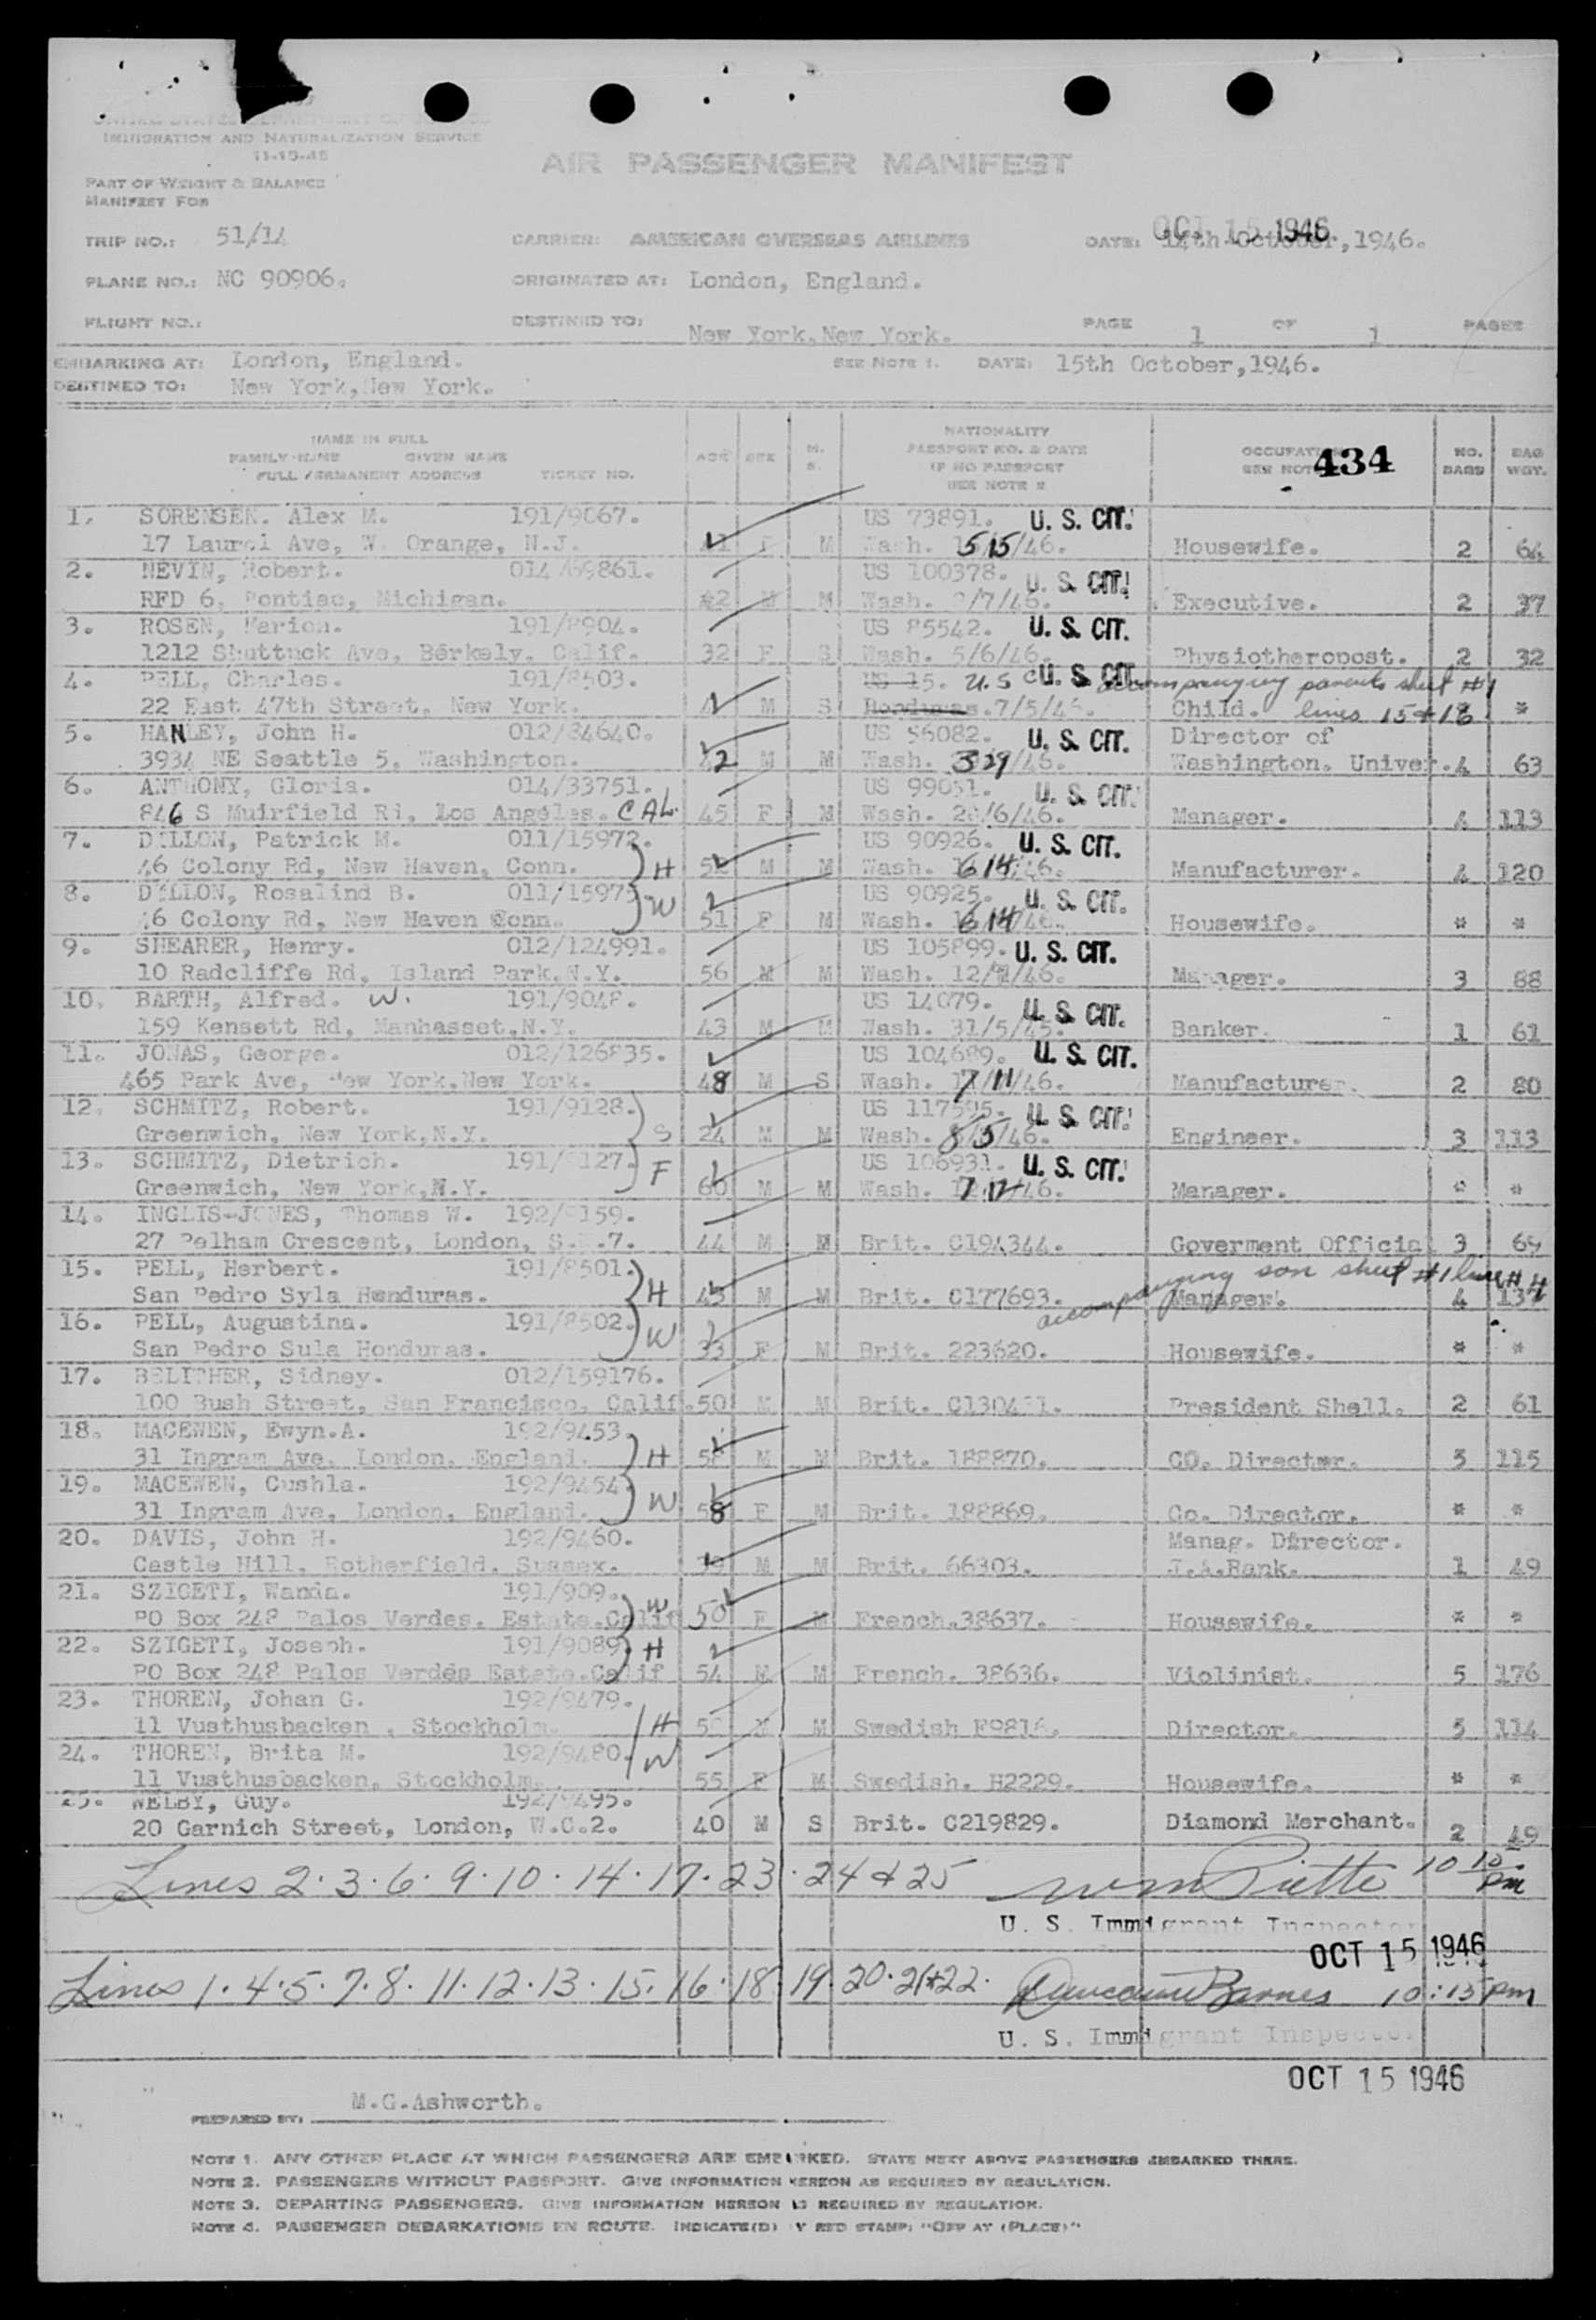 IMMIGRATION AND NATURALIZATION SERVICE
11-15-45
AIR PASSENGER MANIFEST
PART OF WEIGHT & BALANCE
MANIFEST FOR
TRIP NO.: 51/14 CARRIER: AMERICAN OVERSEAS AIRLINES DATE: OCT 15 1946 14th October, 1946.
PLANE NO.: NC 90906. ORIGINATED AT: London, England.
FLIGHT NO.: DESTINED TO: New York, New York. PAGE 1 OF 1 PAGES
EMBARKING AT: London, England. SEE NOTE 1. DATE: 15th October, 1946.
DESTINED TO: New York, New York.
NAME IN FULL
FAMILY NAME GIVEN NAME
FULL PERMANENT ADDRESS TICKET NO. AGE SEX M. S.
NATIONALITY
PASSPORT NO. & DATE
IF NO PASSPORT
SEE NOTE 2
OCCUPATION
SEE NOTE 434 NO. BAGS BAG WGT.
1. SORENSEN. Alex M. 191/9067. US 73891. U. S. CIT.
17 Laurel Ave, W. Orange, N.J. F M Wash. 5/15/46. Housewife. 2 64
2. NEVIN, Robert. US 100378. U. S. CIT.
RFD 6, Pontiac, Michigan. M M Wash. /7/46. Executive. 2 37
3. ROSEN, Marion. 191/8904. US 85542. U. S. CIT.
1212 Shattuck Ave, Berkely, Calif. 32 F S Wash. 5/6/46. Physiotheropost. 2 32
4. PELL, Charles. 191/8503. US 15. U.S C U. S. CIT. accompanying parents sheet #1
22 East 47th Street, New York. M S Honduras. 7/5/46. Child. lines 15+16 *
5. HANLEY, John H. 012/34640. US 56082. U. S. CIT. Director of
3934 NE Seattle 5, Washington. 42 M M Wash. 3/29/46. Washington. Univer. 4 63
6. ANTHONY, Gloria. 014/33751. US 99051. U. S. CIT.
846 S Muirfield Rd, Los Angeles. CAL. 45 F M Wash. /6/46. Manager. 4 113
7. DILLON, Patrick M. 011/15972. US 90926. U. S. CIT.
46 Colony Rd, New Haven, Conn. H M M Wash. 6/14/46. Manufacturer. 4 120
8. DILLON, Rosalind B. 011/15973. US 90925. U. S. CIT.
46 Colony Rd, New Haven Conn. W 51 F M Wash. 6/14/46. Housewife. * *
9. SHEARER, Henry. 012/124991. US 105899. U. S. CIT.
10 Radcliffe Rd, Island Park, N.Y. 56 M M Wash. 12/ /46. Manager. 3 88
10. BARTH, Alfred. W. 191/9048. US 14079. U. S. CIT.
159 Kensett Rd, Manhasset, N.Y. 43 M M Wash. 31/5/45. Banker. 1 61
11. JONAS, George. 012/126835. US 104689. U. S. CIT.
465 Park Ave, New York, New York. 48 M S Wash. 7/11/46. Manufacturer. 2 80
12. SCHMITZ, Robert. 191/9128. US 117595. U. S. CIT.
Greenwich, New York, N.Y. S 24 M M Wash. 8/5/46. Engineer. 3 113
13. SCHMITZ, Dietrich. 191/9127. US 106931. U. S. CIT.
Greenwich, New York, N.Y. F 60 M M Wash. 7/12/46. Manager. * *
14. INGLIS-JONES, Thomas W. 192/9159.
27 Pelham Crescent, London, S.W.7. 44 M M Brit. C194344. Goverment Official 3 69
15. PELL, Herbert. 191/8501. accompanying son sheet #1 line #4
San Pedro Syla Honduras. H 45 M M Brit. C177693. Manager. 4 134
16. PELL, Augustina. 191/8502.
San Pedro Sula Honduras. W 33 F M Brit. 223620. Housewife. * *
17. BELITHER, Sidney. 012/159176.
100 Bush Street, San Francisco, Calif. 50 M M Brit. President Shell. 2 61
18. MACEWEN, Ewyn.A. 192/9453.
31 Ingram Ave, London, England. H 58 M M Brit. 188870. CO. Director. 5 115
19. MACEWEN, Cushla. 192/9454
31 Ingram Ave, London, England. W 58 F M Brit. 188869. Co. Director. * *
20. DAVIS, John H. 192/9460. Manag. Director.
Castle Hill, Rotherfield, Sussex. 39 M M Brit. 66303. J.A.Rank. 1 49
21. SZIGETI, Wanda. 191/909.
PO Box 248 Palos Verdes, Estate.Calif W 50 F M French.38637. Housewife. * *
22. SZIGETI, Joseph. 191/9089
PO Box 248 Palos Verdes Estate.Calif H 54 M M French. 38636. Violinist. 5 176
23. THOREN, Johan G. 192/9479.
11 Vusthusbacken, Stockholm. H M M Swedish F9816. Director. 5 114
24. THOREN, Brita M. 192/9480.
11 Vusthusbacken, Stockholm. W 55 F M Swedish. H2229. Housewife. * *
25. WELBY, Guy. 192/9495.
20 Garnich Street, London, W.C.2. 40 M S Brit. C219829. Diamond Merchant. 2 49
Lines 2.3.6.9.10.14.17.23.24 & 25 Wm Piette 10 15 Pm
U. S. Immigrant Inspector
OCT 15 1946
Lines 1.4.5.7.8.11.12.13.15.16.18.19.20.21+22. Barnes 10:15 pm
U. S. Immigrant Inspector
OCT 15 1946
PREPARED BY: M.G.Ashworth.
NOTE 1. ANY OTHER PLACE AT WHICH PASSENGERS ARE EMBARKED. STATE NEXT ABOVE PASSENGERS EMBARKED THERE.
NOTE 2. PASSENGERS WITHOUT PASSPORT. GIVE INFORMATION HEREON AS REQUIRED BY REGULATION.
NOTE 3. DEPARTING PASSENGERS. GIVE INFORMATION HEREON AS REQUIRED BY REGULATION.
NOTE 4. PASSENGER DEBARKATIONS EN ROUTE. INDICATE(D) BY RED STAMP: "OFF AT (PLACE)"